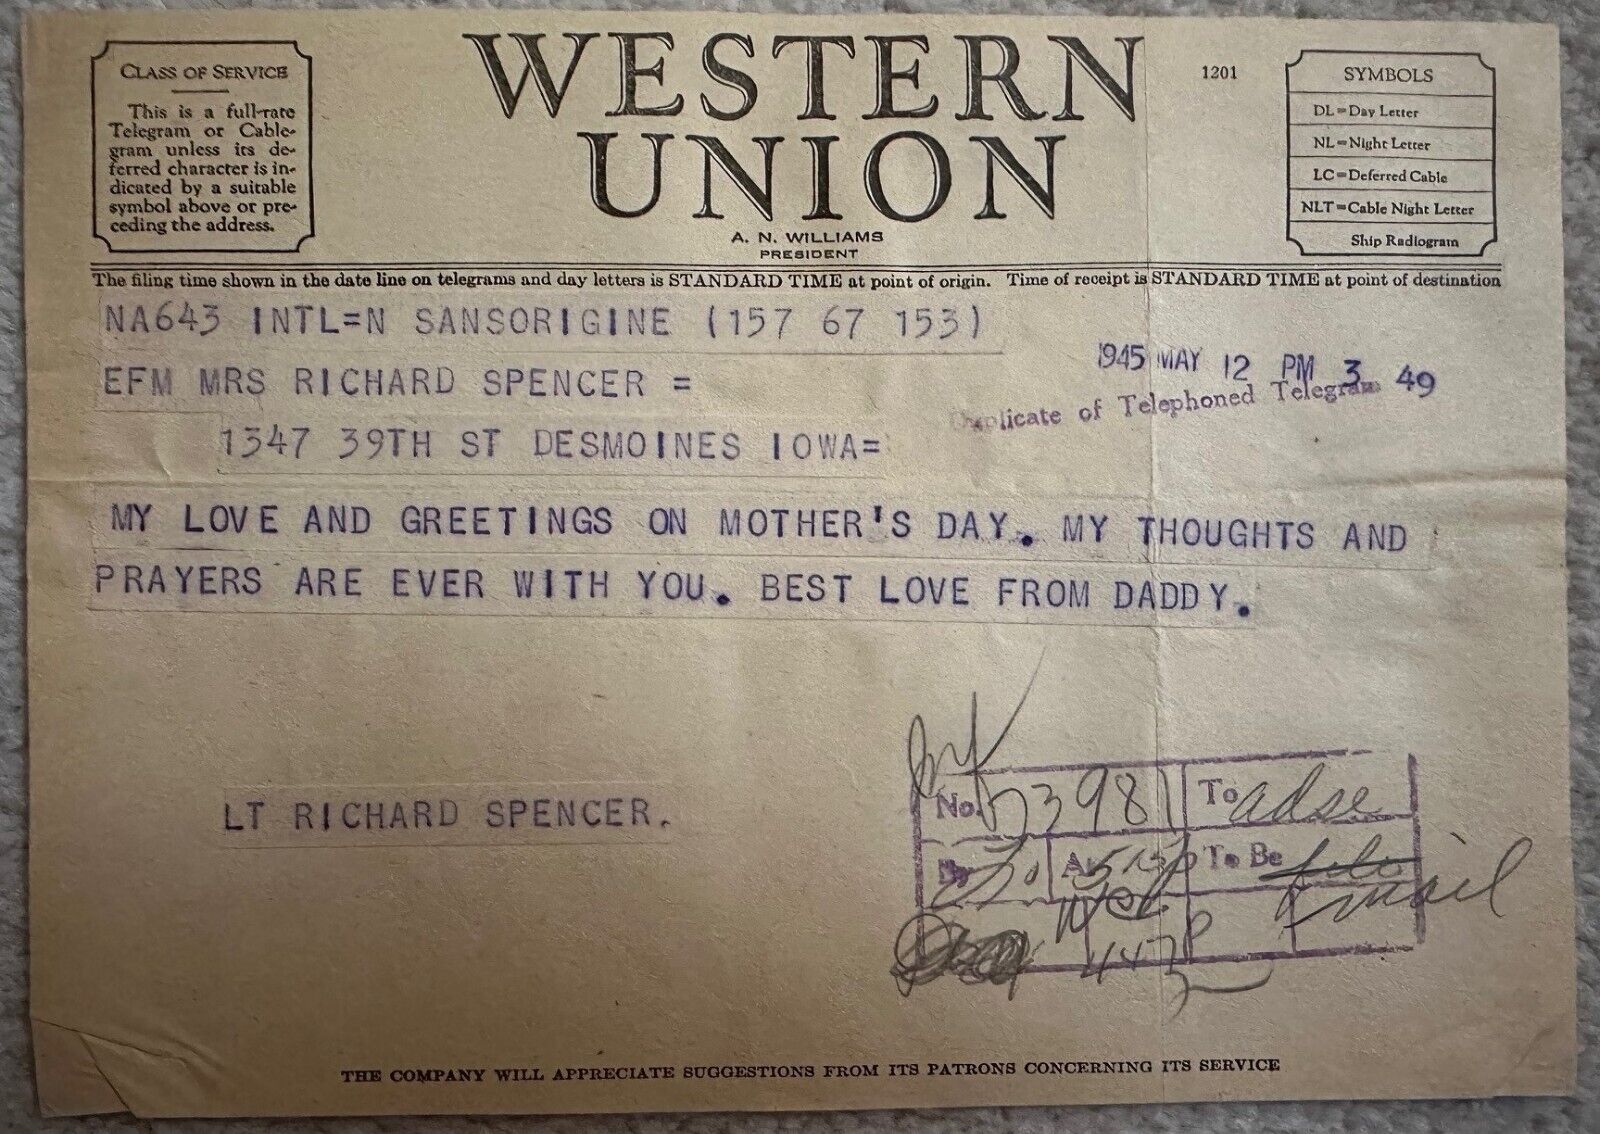 CLASS OF SERVICE
This is a full-rate
Telegram or Cable-
gram unless its de-
ferred character is in-
dicated by a suitable
symbol above or pre-
ceding the address.
WESTERN
UNION
A. N. WILLIAMS
PRESIDENT
1201
SYMBOLS
DL=Day Letter
NL=Night Letter
LC=Deferred Cable
NLT=Cable Night Letter
Ship Radiogram
The filing time shown in the date line on telegrams and day letters is STANDARD TIME at point of origin. Time of receipt is STANDARD TIME at point of destination
NA643 INTL=N SANSORIGINE (157 67 153)
1945 MAY 12 PM 3 49
EFM MRS RICHARD SPENCER =
Duplicate of Telephoned Telegram
1347 39TH ST DESMOINES IOWA=
MY LOVE AND GREETINGS ON MOTHER'S DAY. MY THOUGHTS AND
PRAYERS ARE EVER WITH YOU. BEST LOVE FROM DADDY.
LT RICHARD SPENCER.
No. 73981 To adse
By At To Be
mail
447p
THE COMPANY WILL APPRECIATE SUGGESTIONS FROM ITS PATRONS CONCERNING ITS SERVICE